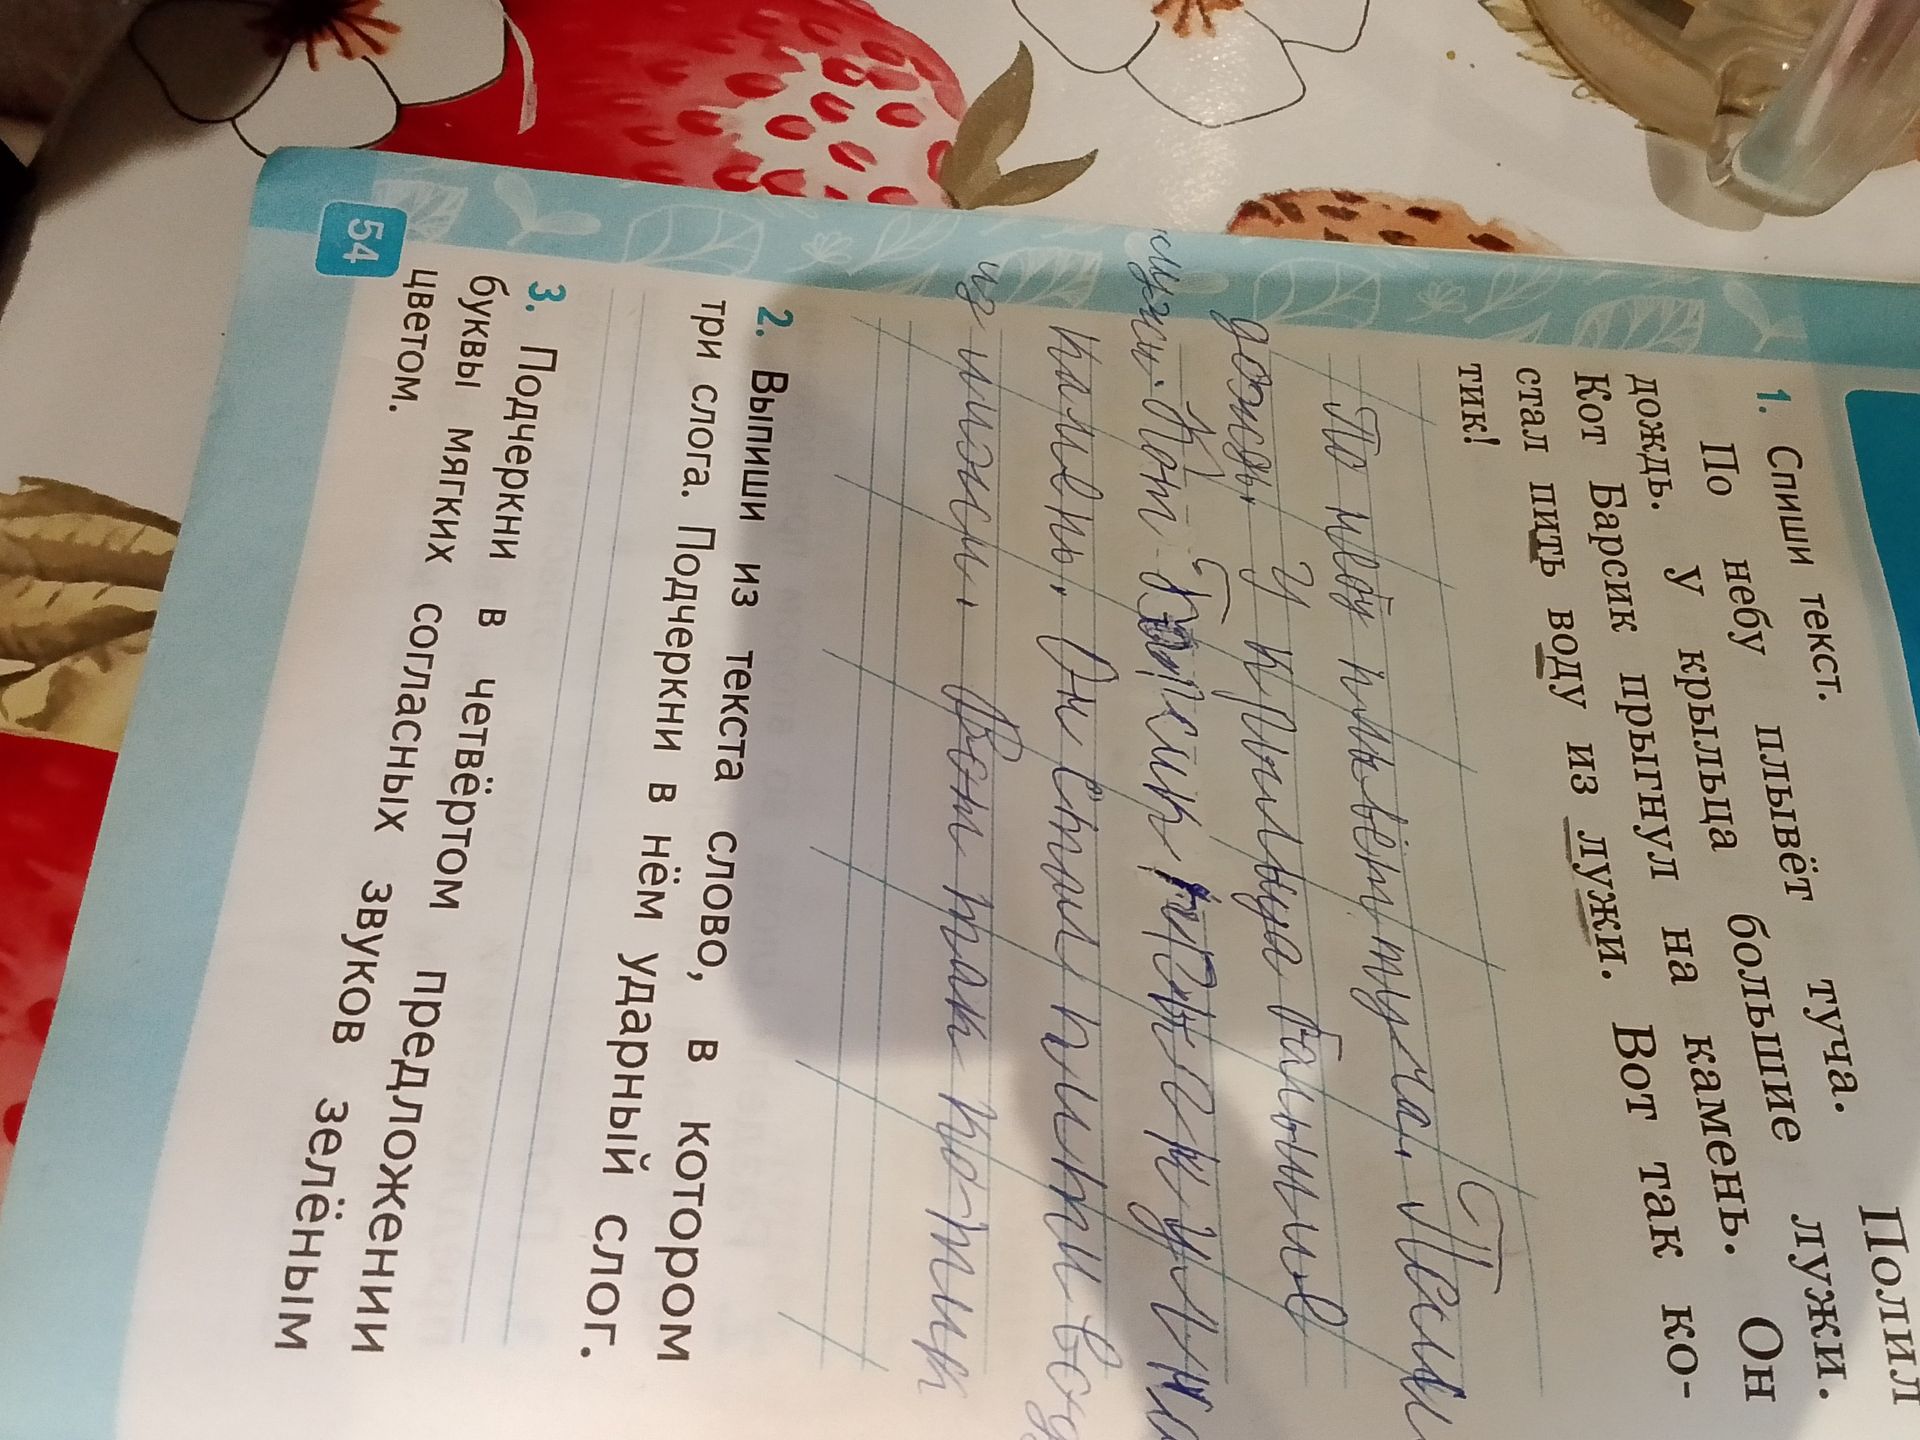 1. Спиши текст.
По небу плывёт туча. Полил
дождь. У крыльца большие лужи.
Кот Барсик прыгнул на камень. Он
стал пить воду из лужи. Вот так ко-
тик!
По небу плывёт туча. Полил
дождь. У крыльца большие
лужи. Кот Барсик
камень. Он стал пить воду
из лужи. Вот так котик
2. Выпиши из текста слово, в котором
три слога. Подчеркни в нём ударный слог.
3. Подчеркни в четвёртом предложении
буквы мягких согласных звуков зелёным
цветом.
54